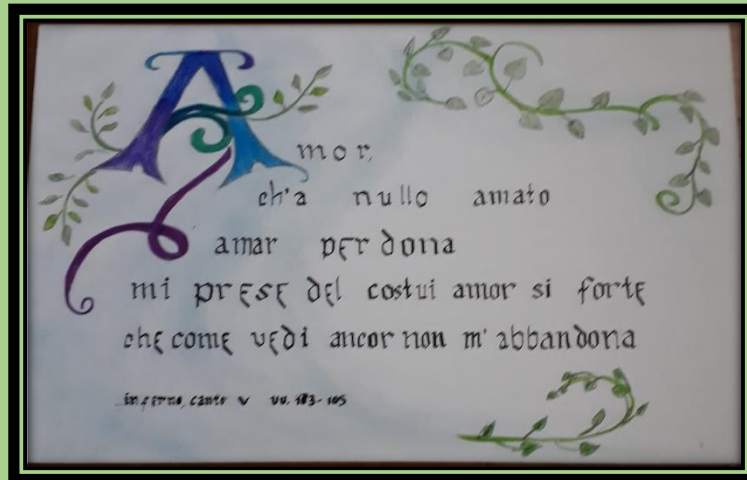 Amor,
ch'a nullo amato
amar perdona
mi prese del costui amor si forte
che come vedi ancor non m'abbandona
inferno, canto v vv. 103-105